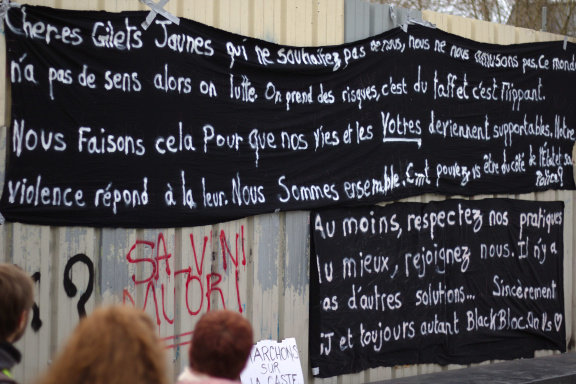 Cher·es Gilets Jaunes qui ne souhaitez pas de nous, nous ne
pas. Ce mond
n'a pas de sens alors on lutte. On prend des risques, c'est du taffet c'est flippant.
Nous Faisons cela Pour que nos vies et les Votres deviennent supportables. Notre
violence répond à la leur. Nous Sommes ensemble. pouvez vs être du côté de l'État
Au moins, respectez nos pratiques
u mieux, rejoignez nous. Il n'y a
as d'autres solutions... Sincèrement
J et toujours autant Black Bloc.
SALVINI
?
ARCHONS
SUR
A CASTE